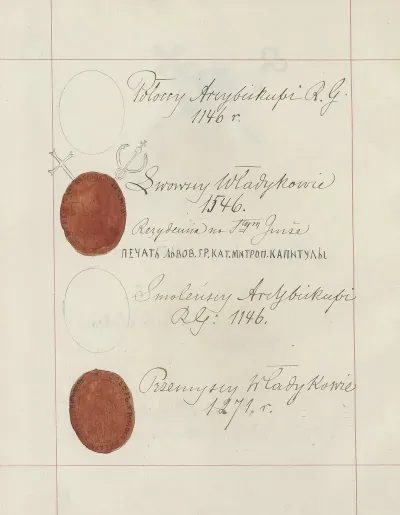 Połoccy Arcybiskupi R. G.
1146 r.
Lwowscy Władykowie
1546.
Rezydencia na Sgo Jurże
ПЕЧАТЬ ЛЬВОВ. ГР. КАТ. МИТРОП. КАПИТУЛЫ
Smoleńscy Arcybiskupi
R.G: 1146.
Przemyscy Władykowie
1271. r.